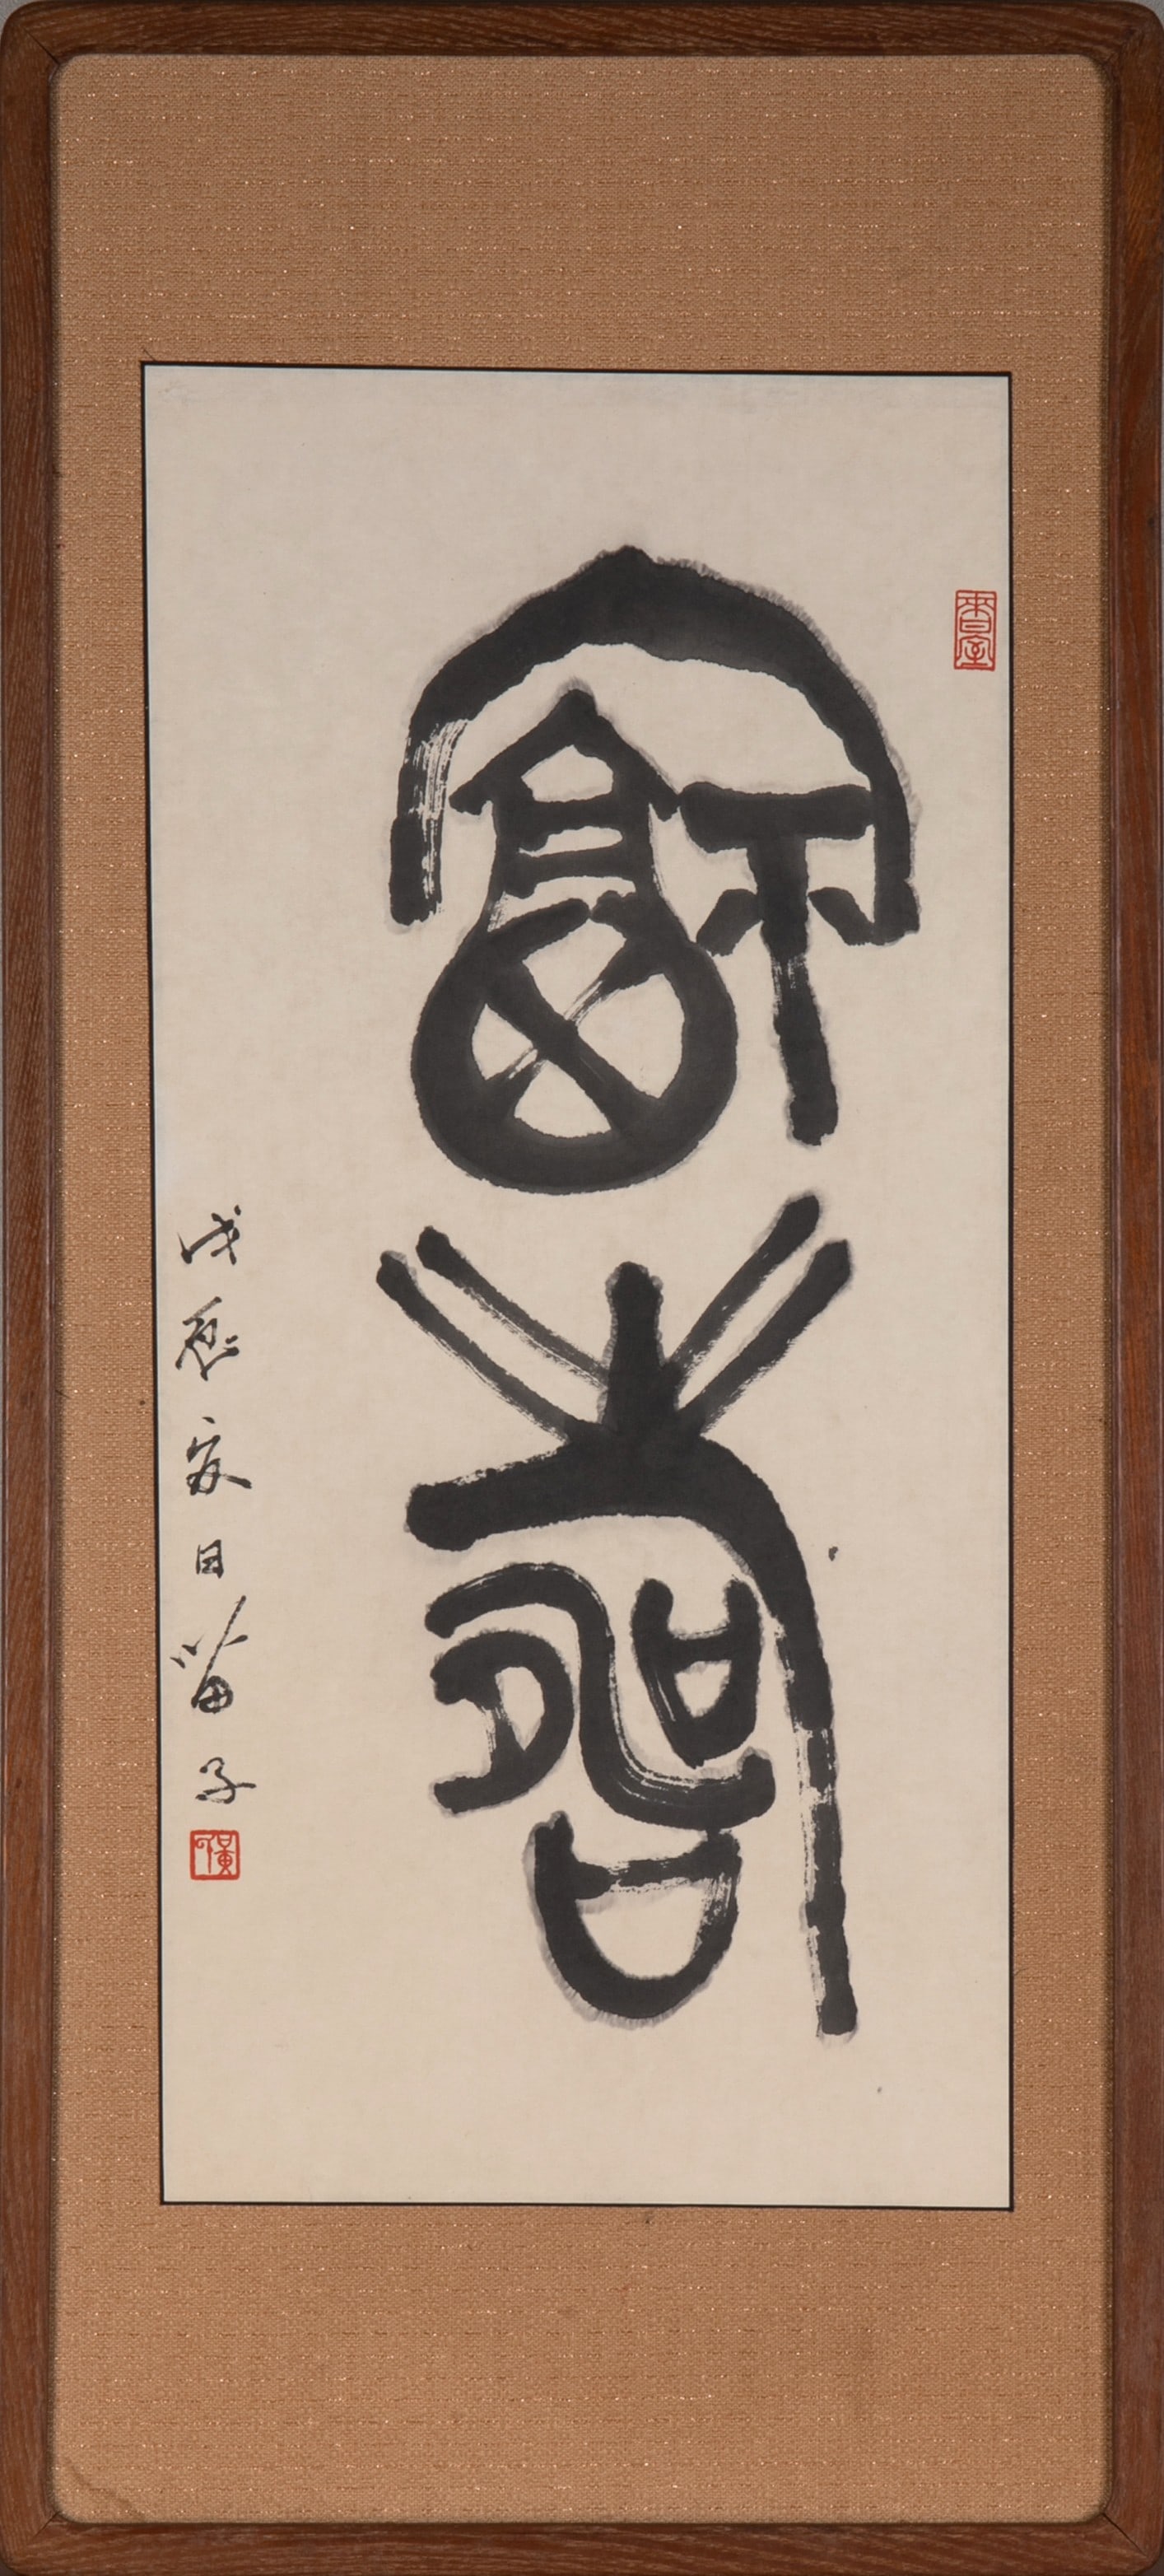 福壽
戊辰夏日苗子